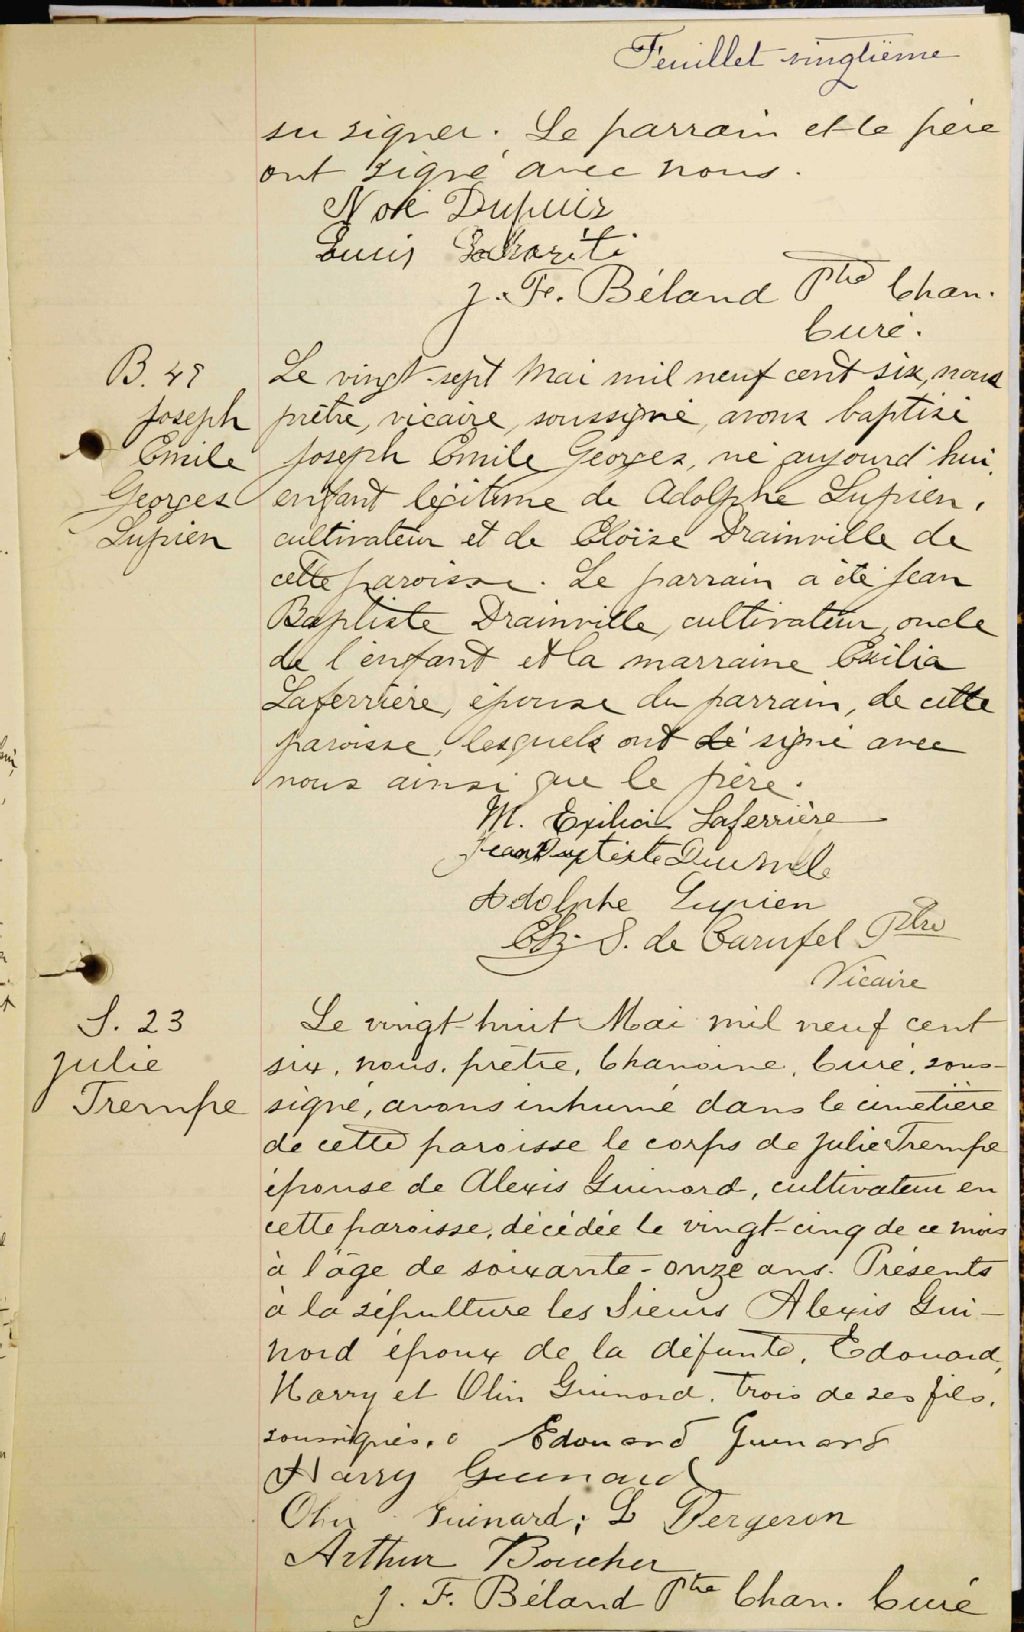 Feuillet vingtième
su signer. Le parrain et le père
ont signé avec nous.
Noé Dupuis
Louis
J. F. Béland Ptre Chan.
Curé.
B. 49
Joseph
Emile
Georges
Lupien
Le vingt-sept Mai mil neuf cent six, nous
prêtre, vicaire, soussigné, avons baptisé
Joseph Emile Georges, né aujourd'hui,
enfant légitime de Adolphe Lupien,
cultivateur et de Eloïse Drainville de
cette paroisse. Le parrain a été Jean
Baptiste Drainville, cultivateur, oncle
de l'enfant et la marraine Exilia
Laferrière, épouse du parrain, de cette
paroisse, lesquels ont signé avec
nous ainsi que le père.
M. Exilia Laferrière
Jean Baptiste
Adolphe Lupien
S. de Carufel Ptre
Vicaire
S. 23
Julie
Trempe
Le vingt-huit Mai mil neuf cent
six, nous, prêtre, Chanoine, Curé, sous-
signé, avons inhumé dans le cimetière
de cette paroisse le corps de Julie Trempe
épouse de Alexis Guinard, cultivateur en
cette paroisse, décédée le vingt-cinq de ce mois
à l'âge de soixante-onze ans. Présents
à la sépulture les Sieurs Alexis Gui-
nard époux de la défunte, Edouard,
Harry et Olin Guinard, trois de ses fils,
soussignés. Edouard Guinard
Harry Guinard
Olin Guinard; L Bergeron
Arthur Boucher
J. F. Béland Ptre Chan. Curé